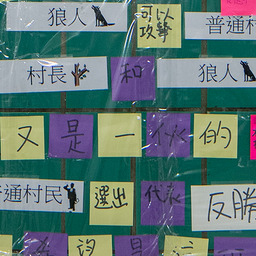 狼人 可以攻擊 普通村
村長 和 狼人
又是一 的
普通村民 選出 代表 反勝